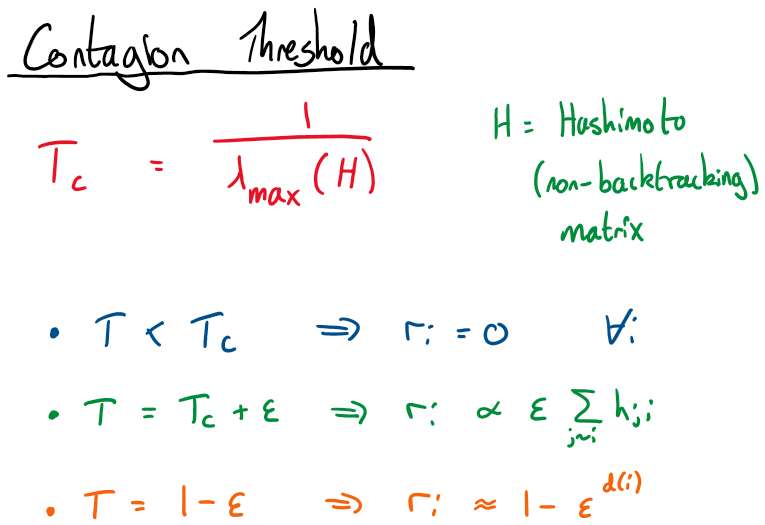 Contagion Threshold
T_c = 1 / λ_max (H)
H = Hashimoto
(non-backtracking)
matrix
• T < T_c ⇒ r_i = 0 ∀i
• T = T_c + ε ⇒ r_i ∝ ε ∑_{j~i} h_{j,i}
• T = 1 - ε ⇒ r_i ≈ 1 - ε^{d(i)}